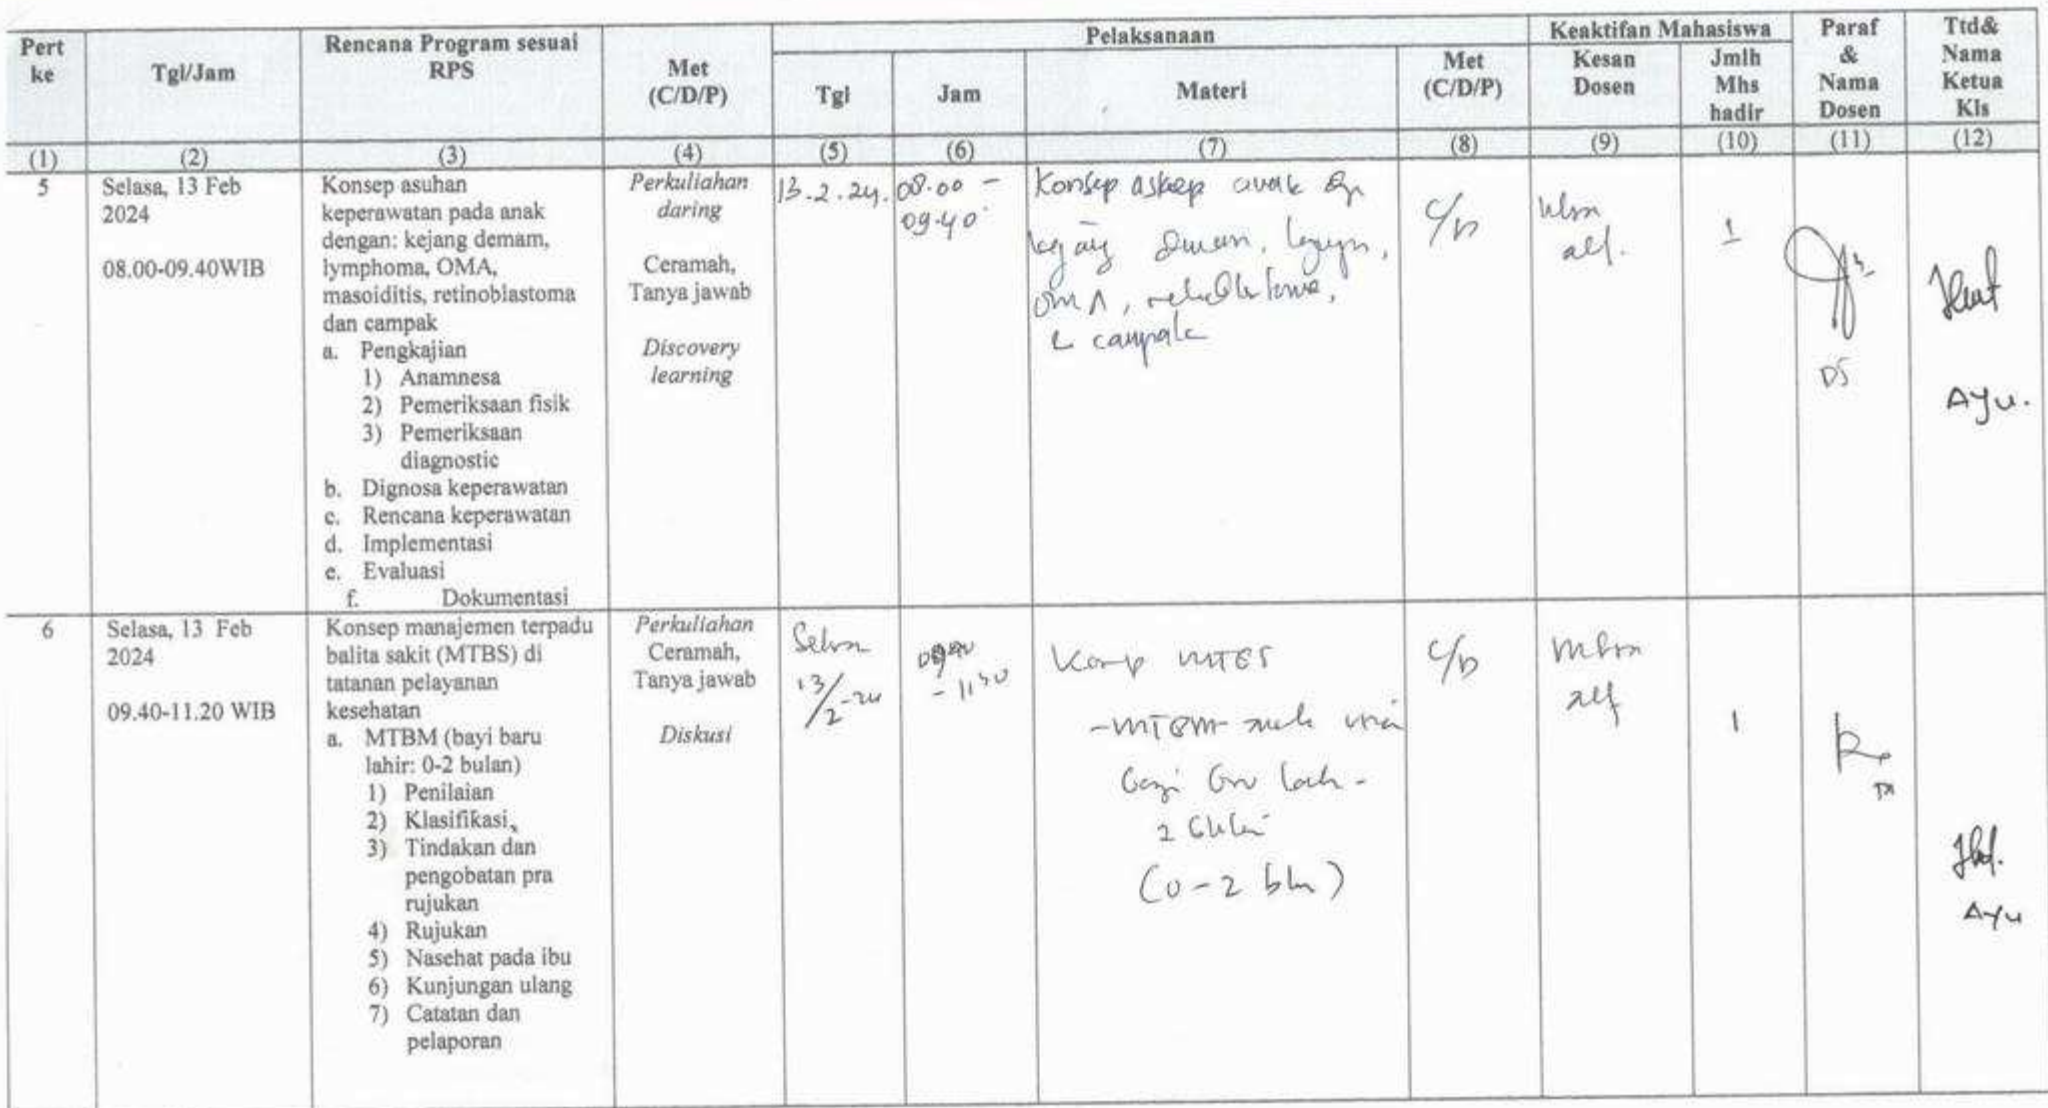 Pert ke
Tgl/Jam
Rencana Program sesuai RPS
Met (C/D/P)
Pelaksanaan
Tgl
Jam
Materi
Met (C/D/P)
Keaktifan Mahasiswa
Kesan Dosen
Jmlh Mhs hadir
Paraf & Nama Dosen
Ttd& Nama Ketua Kls
(1) (2) (3) (4) (5) (6) (7) (8) (9) (10) (11) (12)
5
Selasa, 13 Feb
2024
08.00-09.40WIB
Konsep asuhan
keperawatan pada anak
dengan: kejang demam,
lymphoma, OMA,
masoiditis, retinoblastoma
dan campak
a. Pengkajian
1) Anamnesa
2) Pemeriksaan fisik
3) Pemeriksaan
diagnostic
b. Dignosa keperawatan
c. Rencana keperawatan
d. Implementasi
e. Evaluasi
f. Dokumentasi
Perkuliahan
daring
Ceramah,
Tanya jawab
Discovery
learning
13.2.24.
08.00 -
09.40
Konsep askep anak
OMA,
campak
C/D
1
DS
Ayu.
6
Selasa, 13 Feb
2024
09.40-11.20 WIB
Konsep manajemen terpadu
balita sakit (MTBS) di
tatanan pelayanan
kesehatan
a. MTBM (bayi baru
lahir: 0-2 bulan)
1) Penilaian
2) Klasifikasi,
3) Tindakan dan
pengobatan pra
rujukan
4) Rujukan
5) Nasehat pada ibu
6) Kunjungan ulang
7) Catatan dan
pelaporan
Perkuliahan
Ceramah,
Tanya jawab
Diskusi
Selasa
13/2-24
Konsep MTBS
-MTBM
(0-2 bln)
C/D
1
Ayu